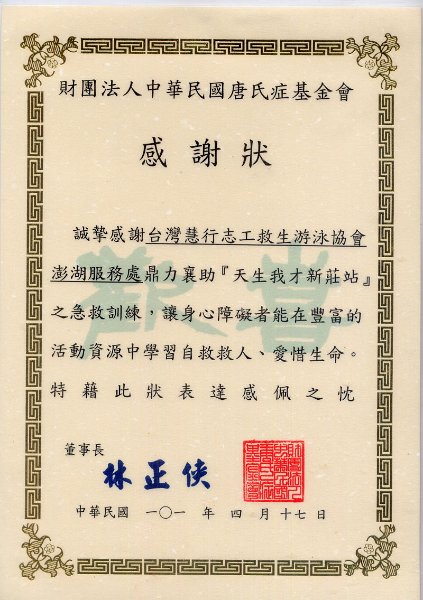 財團法人中華民國唐氏症基金會
感謝狀
誠摯感謝台灣慧行志工救生游泳協會
澎湖服務處鼎力襄助『天生我才新莊站』
之急救訓練，讓身心障礙者能在豐富的
活動資源中學習自救救人、愛惜生命。
特藉此狀表達感佩之忱
董事長
林正俠
中華民國 一〇一 年 四 月 十七 日